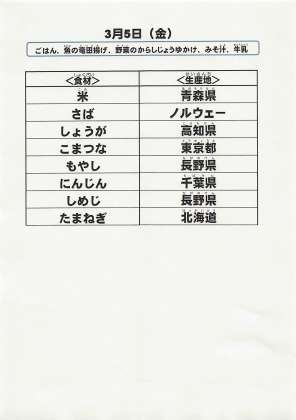 3月5日（金）
ごはん、魚の竜田揚げ、野菜のからしじょうゆかけ、みそ汁、牛乳
＜食材＞ ＜生産地＞
米 青森県
さば ノルウェー
しょうが 高知県
こまつな 東京都
もやし 長野県
にんじん 千葉県
しめじ 長野県
たまねぎ 北海道